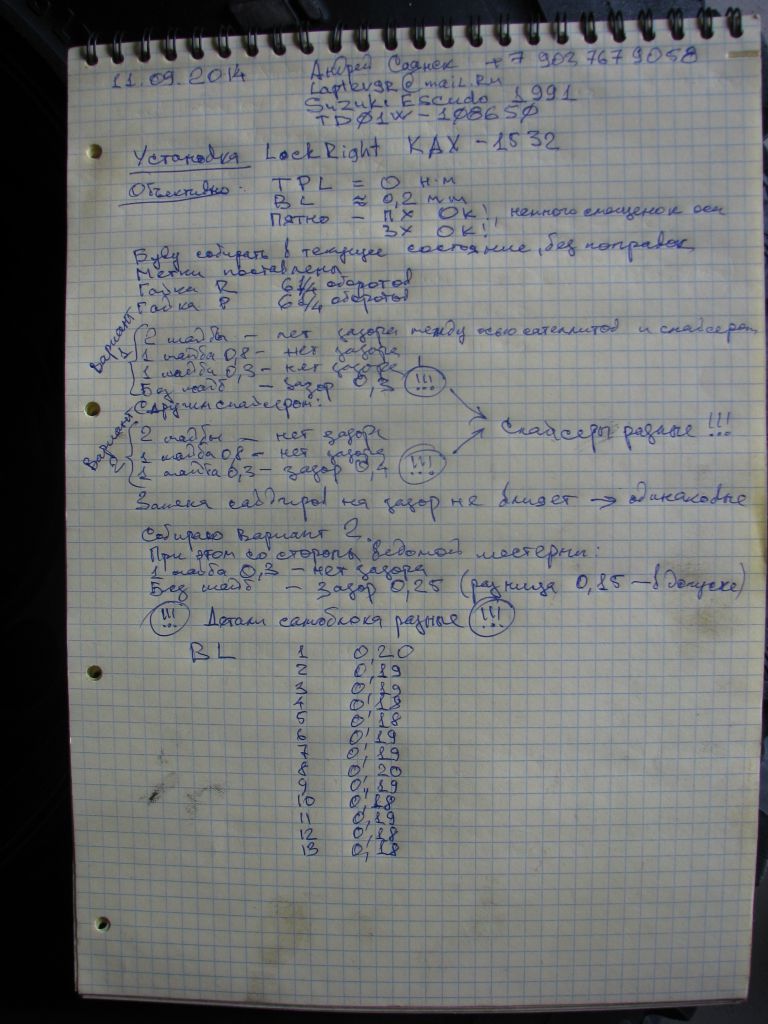 11.09.2014 Андрей Саянск +7 903 767 9058
Laptev92@mail.ru
Suzuki Escudo 1991
TDØ1W-10865Ø
Установка LockRight КАХ-1532
Объективно: TPL = 0 н·м
BL ≈ 0,2 mm
Пятно - ПХ Ок!, немного смещено к оси
ЗХ Ок!
Буду собирать в текущее состояние, без поправок
Метки поставлены
Гайка R 6 1/4 оборотов
Гайка P 6 3/4 оборотов
Вариант 1
2 шайбы - нет зазора между осью сателлитов и спайсером
1 шайба 0,8 - нет зазора
1 шайба 0,3 - нет зазора
Без шайб - зазор 0,3 !!!
С другим спайсером:
Спайсеры разные !!!
Вариант 2
2 шайбы - нет зазора
1 шайба 0,8 - нет зазора
1 шайба 0,3 - зазор 0,4 !!!
Замена сайдгиров на зазор не влияет → одинаковые
Собираю вариант 2.
При этом со стороны ведомой шестерни:
1 шайба 0,3 - нет зазора
Без шайб - зазор 0,25 (разница 0,15 - в допуске)
!!! Детали самоблока разные !!!
BL 1 0,20
2 0,19
3 0,19
4 0,18
5 0,18
6 0,19
7 0,19
8 0,20
9 0,19
10 0,18
11 0,19
12 0,18
13 0,18